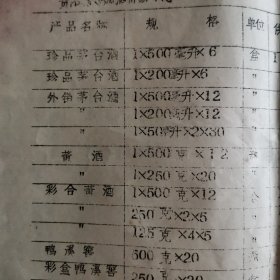 产品名称 规 格 单位
珍品茅台酒 1×500毫升×6 盒
珍品茅台酒 1×200毫升×6 "
外销茅台酒 1×500毫升×12 "
" 1×200毫升×12 "
" 1×50毫升×2×30 "
董酒 1×500克×12 "
" 1×250克×20 "
彩合董酒 1×500克×12 "
" 250克×2×6 "
" 125克×4×5 "
鸭溪窖 500克×20 "
彩盒鸭溪窖 250克×20